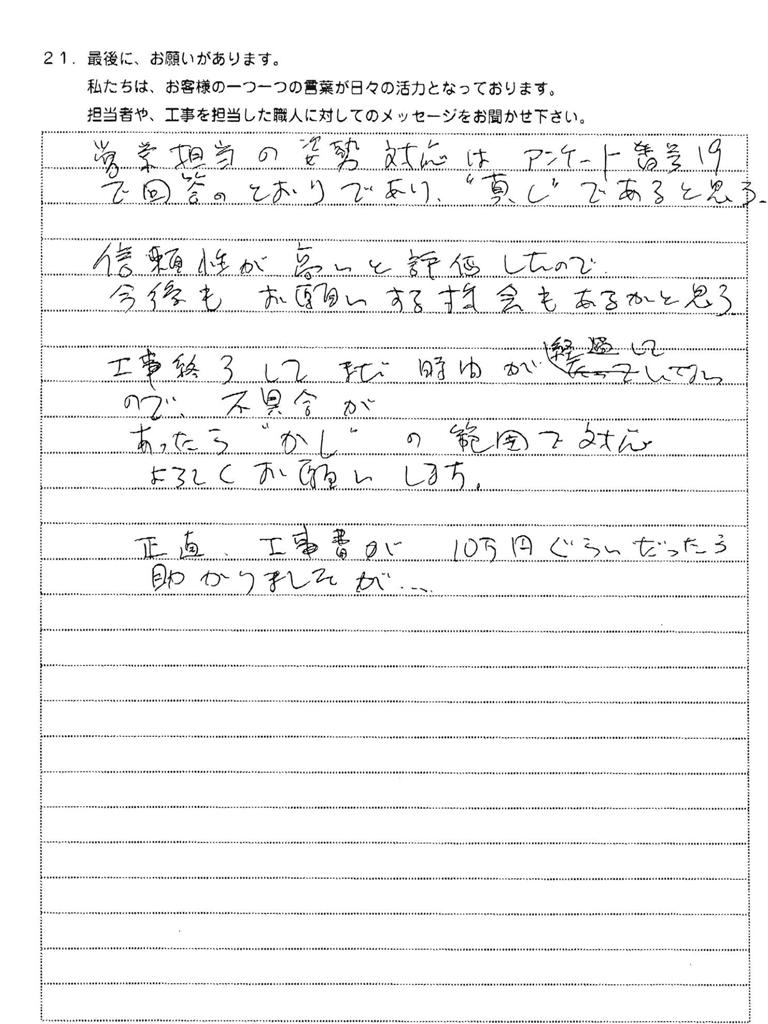 21．最後に、お願いがあります。
私たちは、お客様の一つ一つの言葉が日々の活力となっております。
担当者や、工事を担当した職人に対してのメッセージをお聞かせ下さい。
営業担当の姿勢 対応は アンケート番号19
で回答のとおりであり、“真し”であると思う。
信頼性が高いと評価したので、
今後も お願いする機会もあるかと思う
工事終了して まだ 時間が 経過して
いない
ので、不具合が
あったら“かし”の範囲で対応
よろしくお願いします。
正直、工事費が 10万円ぐらいだったら
助かりましたが…